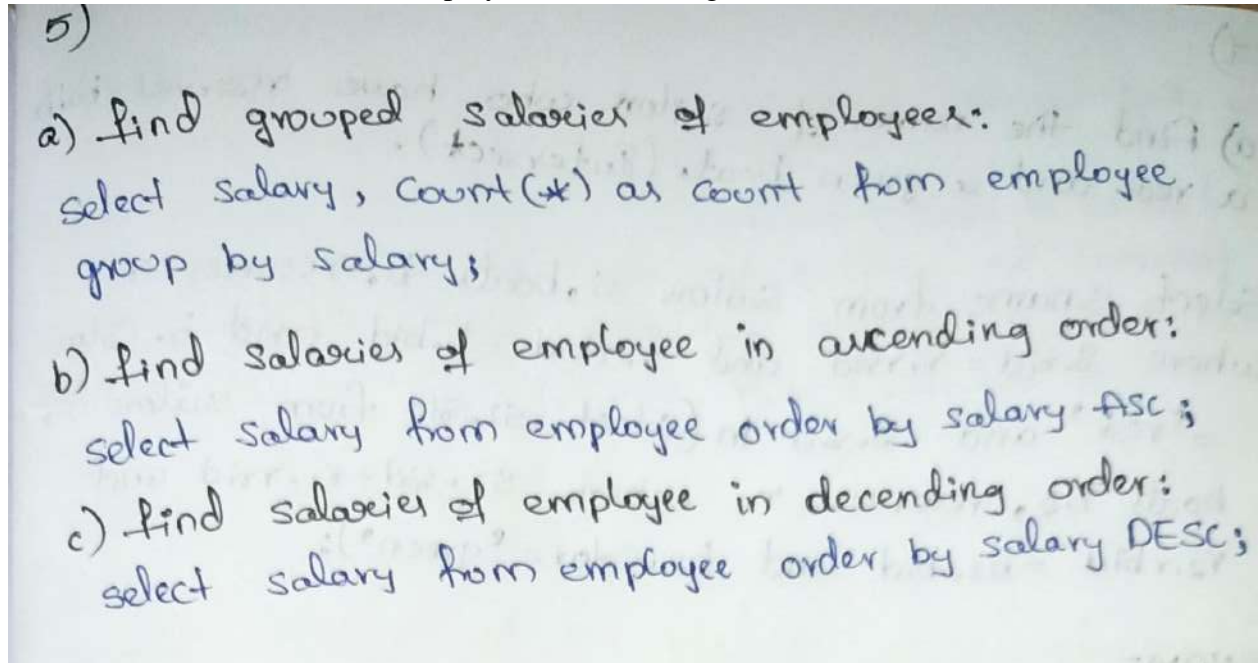 5)
a) find grouped salaries of employees:
select salary, Count(*) as Count from employee
group by salary;
b) find salaries of employee in ascending order:
select salary from employee order by salary ASC;
c) find salaries of employee in decending order:
select salary from employee order by salary DESC;